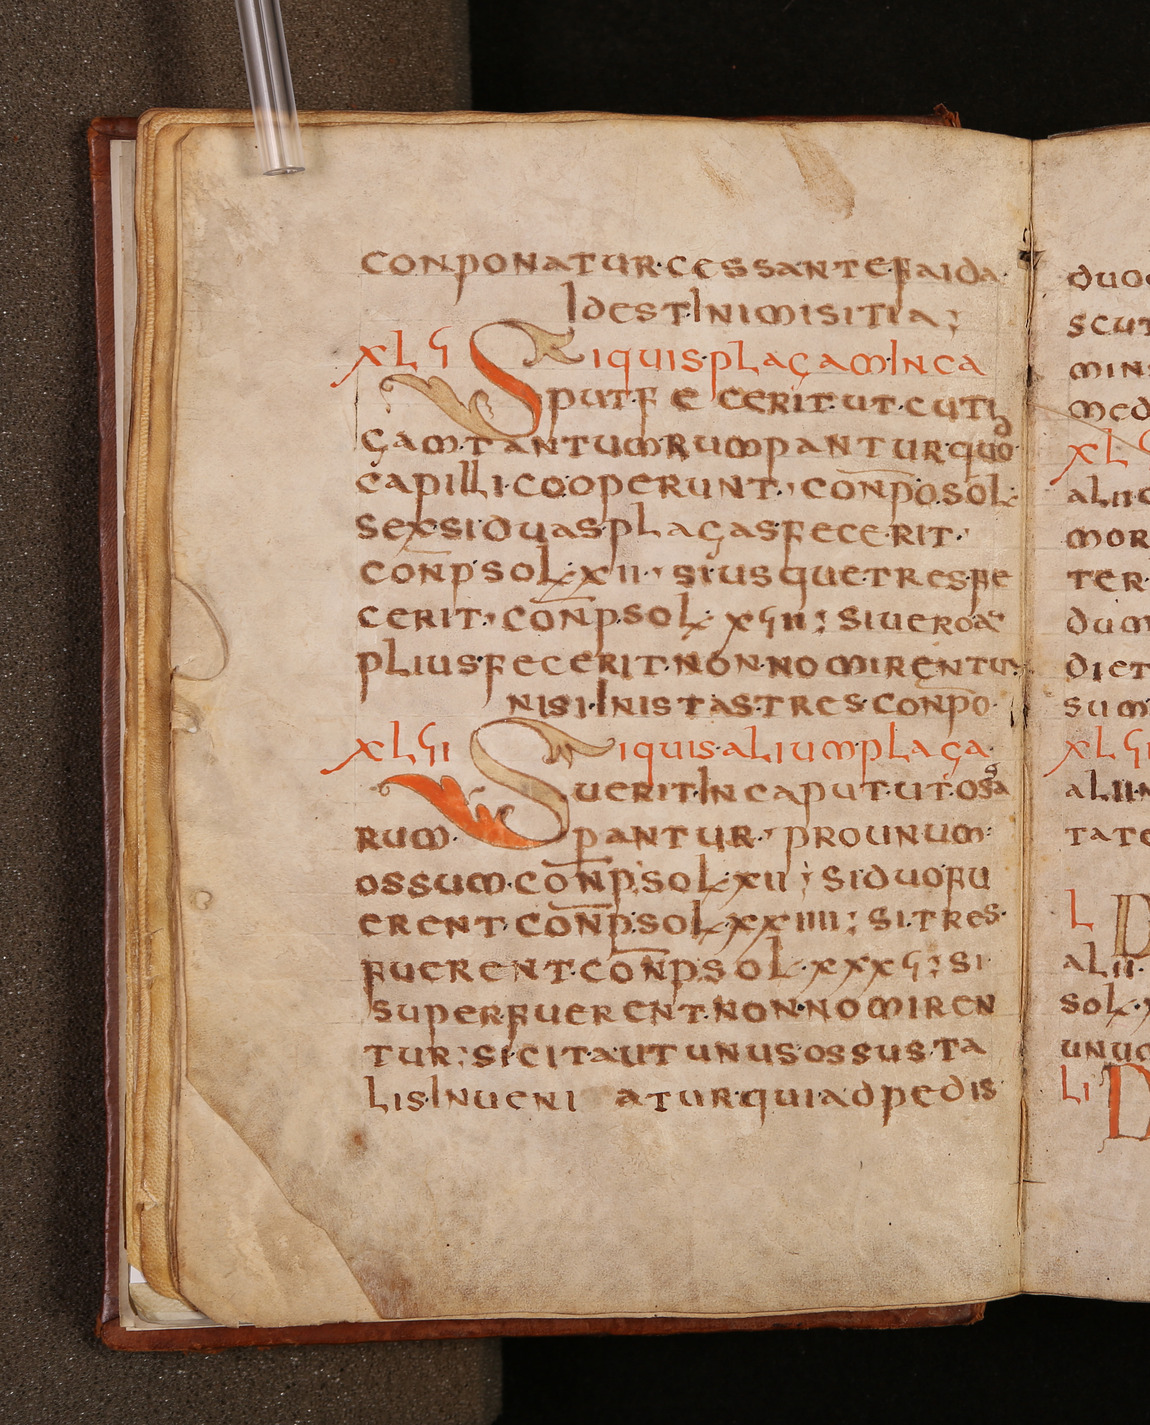 CONPONATUR·CESSANTE·FAIDA·
IDEST·INIMISITIA;
XLVI SIQUIS·PLAGAM·INCA
PUT·FECERIT·UT·CUTI
CAM·TANTUM·RUMPANTUR·QUOD
CAPILLI·COOPERUNT·, CONPO·SOL·
SEX·SI DUAS·PLAGAS·FECERIT·
CONP·SOL·XII·, SI USQUE·TRES·FE
CERIT·, CONP·SOL· XVIII; SI UERO AC
PLIUS·FECERIT·NON·NOMIRENTUR·
NISI·INISTAS·TRES·CONPO·
XLVII SIQUIS·ALIUM·PLAGA
UERIT·IN CAPUT·UT·OSSA
RUM·PANTUR·, PRO UNUM·
OSSUM·CONP·SOL·XII; SI DUO FU
ERENT·CONP·SOL·XXIIII; SI·TRES·
FUERENT·CONP·SOL·XXXVI; SI·
SUPERFUERENT·NON·NOMIREN
TUR; SIC ITA UT UNUS OSSUS·TA
LIS·INUENIATUR·QUI AD PEDIS·
DUO
SCUT
MIN
MED
XLV
ALII·C
MOR
TER·
DUM
DIET
SUM
XLVI
ALII·N
TATE
L D
ALII·
SOL·X
UNUC
LI D